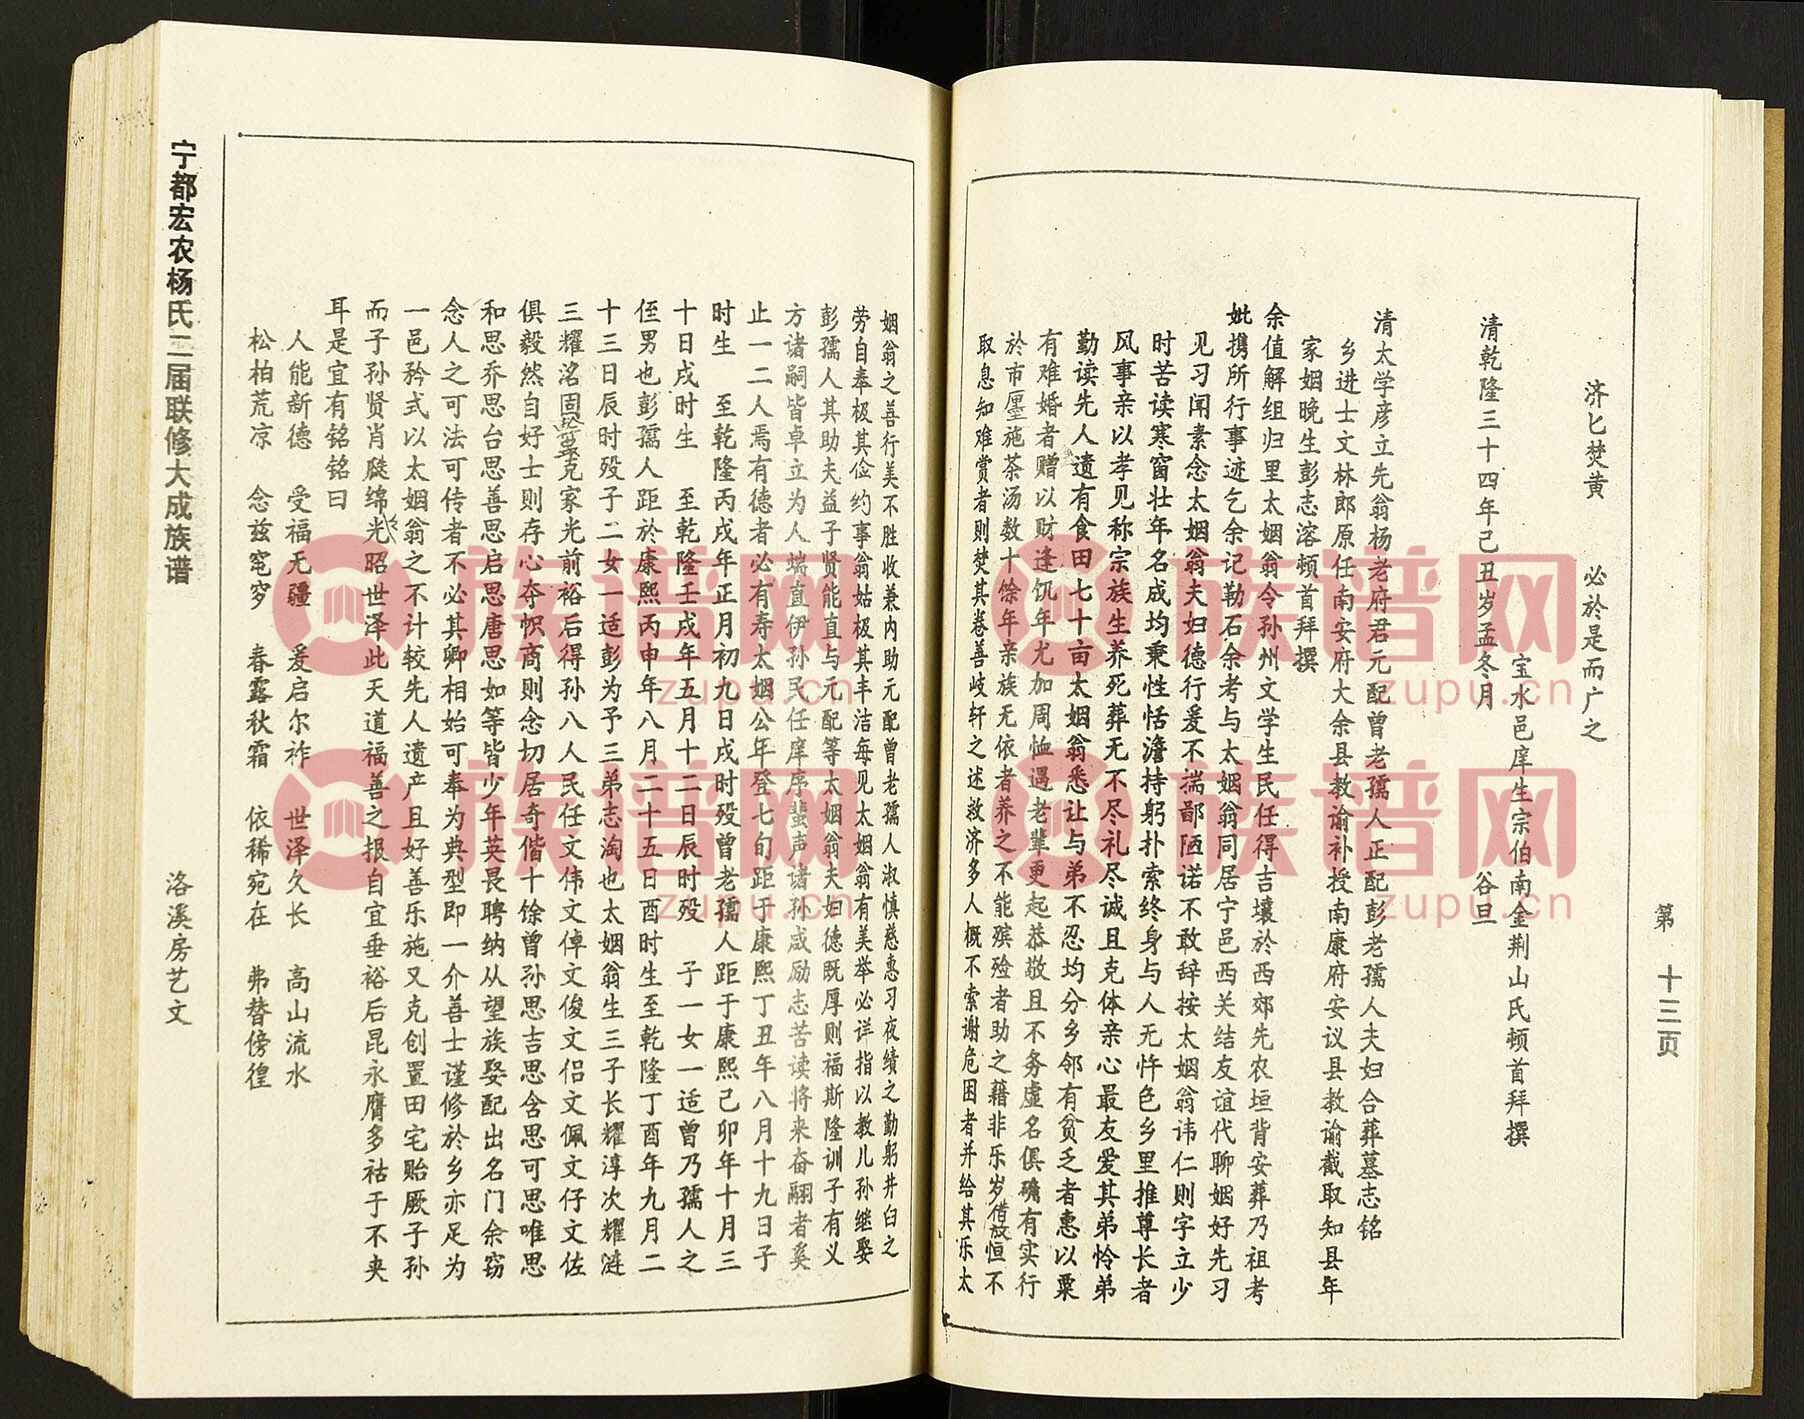 第 十三页
济匕焚黄 必於是而广之
宝水邑庠生宗伯南金荆山氏顿首拜撰
清乾隆三十四年己丑岁孟冬月 谷旦
清太学彦立先翁杨老府君元配曾老孺人正配彭老孺人夫妇合葬墓志铭
乡进士文林郎原任南安府大余县教谕补授南康府安议县教谕截取知县年
家姻晚生彭志溶顿首拜撰
余值解组归里太姻翁令孙州文学生民任得吉壤於西郊先农垣背安葬乃祖考
妣携所行事迹乞余记勒石余考与太姻翁同居宁邑西关结友谊代聊姻好先习
见习闻素念太姻翁夫妇德行爰不揣鄙陋诺不敢辞按太姻翁讳仁则字立少
时苦读寒窗壮年名成均秉性恬澹持躬扑索终身与人无忤色乡里推尊长者
风事亲以孝见称宗族生养死葬无不尽礼尽诚且克体亲心最友爱其弟怜弟
勤读先人遗有食田七十亩太姻翁悉让与弟不忍均分乡邻有贫乏者惠以粟
有难婚者赠以财逢饥年尤加周恤遇老辈更起恭敬且不务虚名俱确有实行
於市廛施茶汤数十馀年亲族无依者养之不能殡殓者助之藉非乐岁借放恒不
取息知难赏者则焚其卷善岐轩之述救济多人概不索谢危困者并给其乐太
姻翁之善行美不胜收兼内助元配曾老孺人淑慎慈惠习夜绩之勤躬井臼之
劳自奉极其俭约事翁姑极其丰洁每见太姻翁有美举必详指以教儿孙继娶
彭孺人其助夫益子贤能直与元配等太姻翁夫妇德既厚则福斯隆训子有义
方诸嗣皆卓立为人端直伊孙民任庠序蜚声诸孙咸励志苦读将来奋翮者奚
止一二人焉有德者必有寿太姻公年登七旬距于康熙丁丑年八月十九日子
时生 至乾隆丙戌年正月初九日戌时殁曾老孺人距于康熙己卯年十月三
十日戌时生 至乾隆壬戌年五月十二日辰时殁 子一女一适曾乃孺人之
侄男也彭孺人距於康熙丙申年八月二十五日酉时生至乾隆丁酉年九月二
十三日辰时殁子二女一适彭为予三弟志淘也太姻翁生三子长耀淳次耀涟
三耀洺固坚克家光前裕后得孙八人民任文伟文倬文俊文侣文佩文仔文佐
俱毅然自好士则存心夺帜商则念切居奇偕十馀曾孙思吉思含思可思唯思
和思乔思台思善思启思唐思如等皆少年英畏聘纳从望族娶配出名门余窃
念人之可法可传者不必其卿相始可奉为典型即一介善士谨修於乡亦足为
一邑矜式以太姻翁之不计较先人遗产且好善乐施又克创置田宅贻厥子孙
而子孙贤肖瓞绵光昭世泽此天道福善之报自宜垂裕后昆永膺多祜于不夹
耳是宜有铭铭曰
人能新德 受福无疆 爰启尔祚 世泽久长 高山流水
松柏荒凉 念兹窀穸 春露秋霜 依稀宛在 弗替傍徨
宁都宏农杨氏二届联修大成族谱 洛溪房艺文
族谱网
zupu.cn
族谱网
zupu.cn
族谱网
zupu.cn
族谱网
zupu.cn